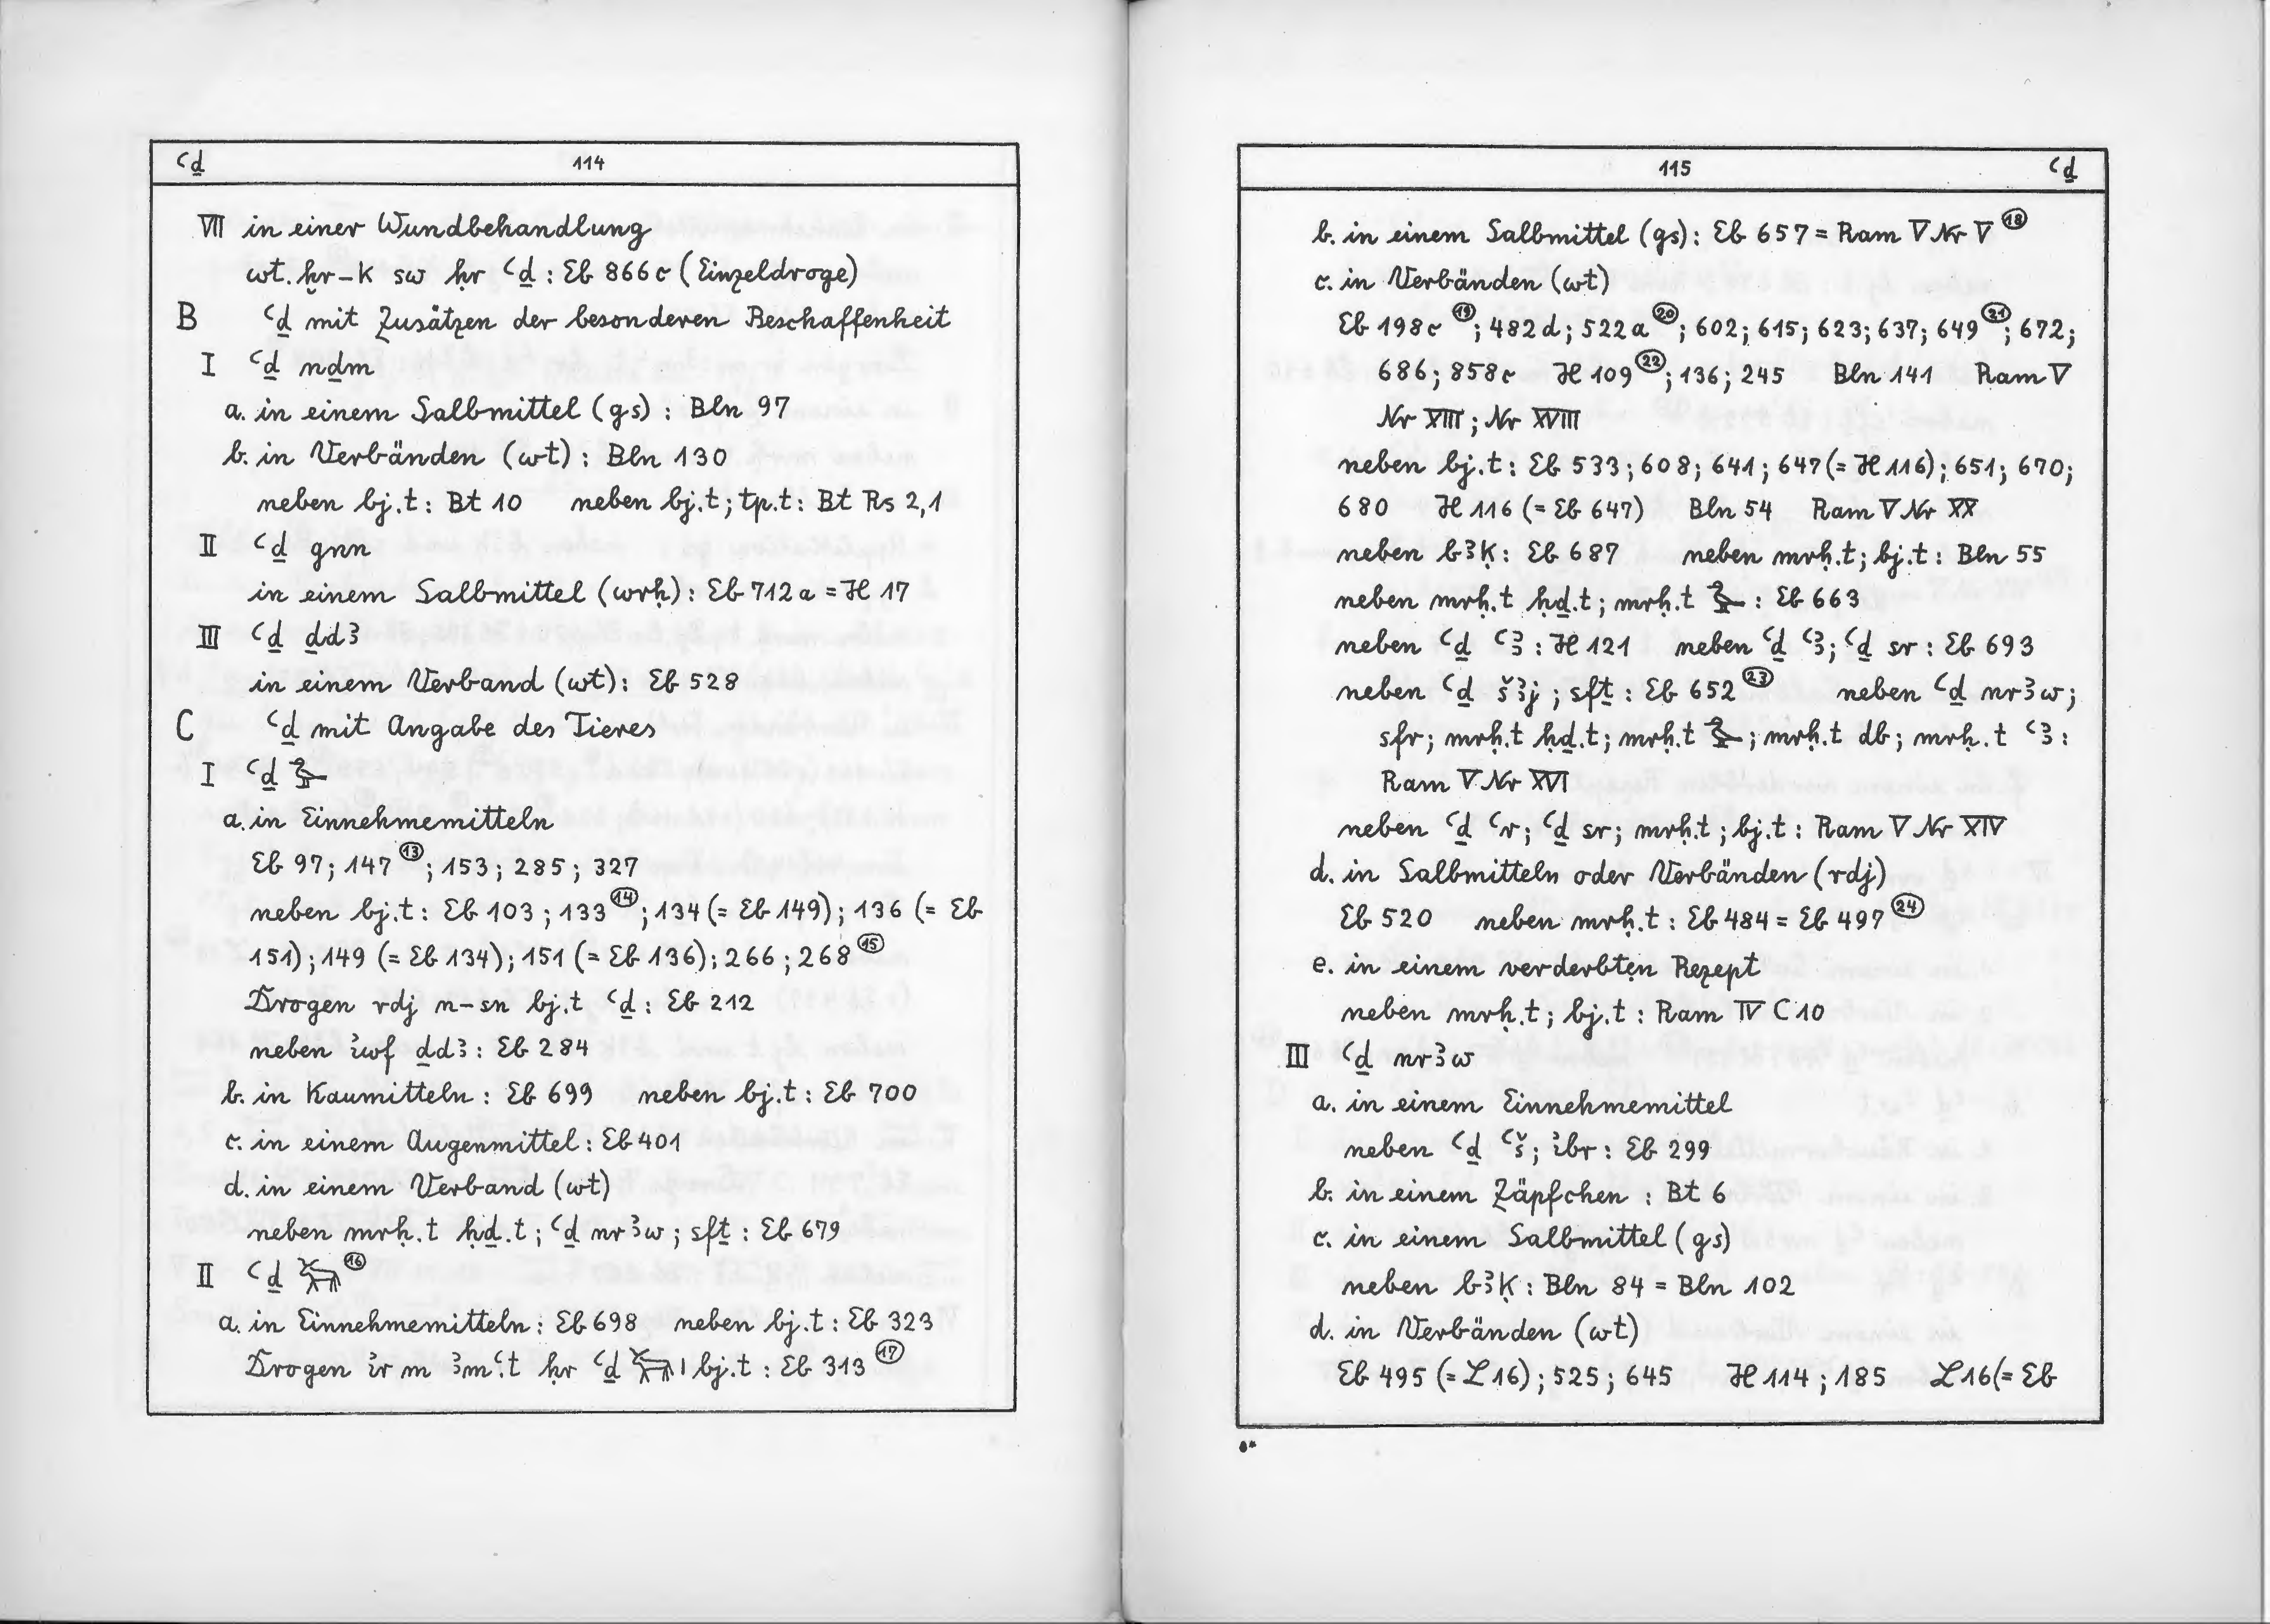 ꜥḏ 114
VII in einer Wundbehandlung
wt.ḫr-k sw ḥr ꜥḏ : Eb 866c (Einzeldroge)
B ꜥḏ mit Zusätzen der besonderen Beschaffenheit
I ꜥḏ nḏm
a. in einem Salbmittel (gs) : Bln 97
b. in Verbänden (wt) : Bln 130
neben bj.t : Bt 10 neben bj.t ; tp.t : Bt Rs 2,1
II ꜥḏ gnn
in einem Salbmittel (wrḥ) : Eb 712a = H 17
III ꜥḏ ḏdꜣ
in einem Verband (wt) : Eb 528
C ꜥḏ mit Angabe des Tieres
I ꜥḏ 𓅬
a. in Einnehmemitteln
Eb 97; 147 ⑬; 153; 285; 327
neben bj.t : Eb 103; 133 ⑭; 134 (= Eb 149); 136 (= Eb
151); 149 (= Eb 134); 151 (= Eb 136); 266; 268 ⑮
Drogen rdj n-sn bj.t ꜥḏ : Eb 212
neben ı͗wf ḏdꜣ : Eb 284
b. in Kaumitteln : Eb 699 neben bj.t : Eb 700
c. in einem Augenmittel : Eb 401
d. in einem Verband (wt)
neben mrḥ.t ḥḏ.t ; ꜥḏ nrꜣw ; sfṯ : Eb 679
II ꜥḏ 𓃒 ⑯
a. in Einnehmemitteln : Eb 698 neben bj.t : Eb 323
Drogen ı͗r m ꜣmꜥ.t ḥr ꜥḏ 𓃒𓏤 bj.t : Eb 313 ⑰
115 ꜥḏ
b. in einem Salbmittel (gs) : Eb 657 = Ram V Nr V ⑱
c. in Verbänden (wt)
Eb 198c ⑲; 482d; 522a ⑳; 602; 615; 623; 637; 649 ㉑; 672;
686; 858c H 109 ㉒; 136; 245 Bln 141 Ram V
Nr XIII ; Nr XVIII
neben bj.t : Eb 533; 608; 641; 647 (= H 116); 651; 670;
680 H 116 (= Eb 647) Bln 54 Ram V Nr XX
neben bꜣḳ : Eb 687 neben mrḥ.t ; bj.t : Bln 55
neben mrḥ.t ḥḏ.t ; mrḥ.t 𓅬 : Eb 663
neben ꜥḏ ꜥꜣ : H 121 neben ꜥḏ ꜥꜣ ; ꜥḏ sr : Eb 693
neben ꜥḏ šꜣj ; sfṯ : Eb 652 ㉓ neben ꜥḏ nrꜣw ;
sfr ; mrḥ.t ḥḏ.t ; mrḥ.t 𓅬 ; mrḥ.t db ; mrḥ.t ꜥꜣ :
Ram V Nr XVI
neben ꜥḏ ꜥr ; ꜥḏ sr ; mrḥ.t ; bj.t : Ram V Nr XIV
d. in Salbmitteln oder Verbänden (rdj)
Eb 520 neben mrḥ.t : Eb 484 = Eb 497 ㉔
e. in einem verderbten Rezept
neben mrḥ.t ; bj.t : Ram IV C 10
III ꜥḏ nrꜣw
a. in einem Einnehmemittel
neben ꜥḏ ꜥš ; ı͗br : Eb 299
b. in einem Zäpfchen : Bt 6
c. in einem Salbmittel (gs)
neben bꜣḳ : Bln 84 = Bln 102
d. in Verbänden (wt)
Eb 495 (= L 16); 525; 645 H 114; 185 L 16 (= Eb
8*